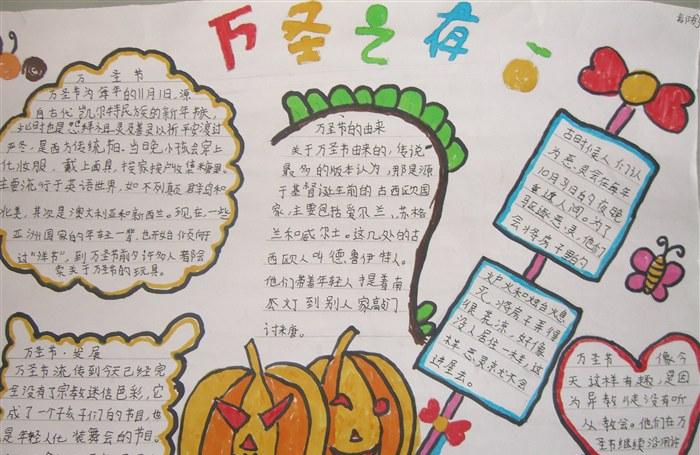 万圣之夜
万圣节
万圣节为每年的11月1日,源
自古代凯尔特民族的新年节庆,
此时也是祭拜祖灵及善灵以祈平安渡过
严冬,是西方传统节日。当日晚小孩会穿上
化妆服,戴上面具,挨家挨户收集糖果。
主要流行于英语世界,如不列颠群岛和
北美,其次是澳大利亚和新西兰。现在,一些
亚洲国家的年轻一辈,也开始倾向于
过“洋节”,到万圣节前夕许多人都会
买关于万圣节的玩具。
万圣节的由来
关于万圣节由来的,传说
最多的版本认为,那是源
于基督诞生前的古西欧国
家,主要包括爱尔兰,苏格
兰和威尔士。这几处的古
西欧人叫德鲁伊特人。
他们带着年轻人手提着南
瓜灯到别人家高门
讨来唐。
古时候人们认
为恶灵会在每年
10月31日的夜晚
重返人间。为了
驱逐恶灵,他们
会将房子里的
炉火和烛台火熄
灭,将房子弄得
很荒凉,好像
没人居住一样,这
样恶灵就不会
进屋去。
万圣节·发展
万圣节流传到今天已经完
全没有了宗教迷信色彩,它
成了一个孩子们的节目,也
是年轻人化装舞会的节目。
万圣节 像今
天这样有趣,是因
为异教徒没有听
从教会。他们在万
圣节继续沿用许